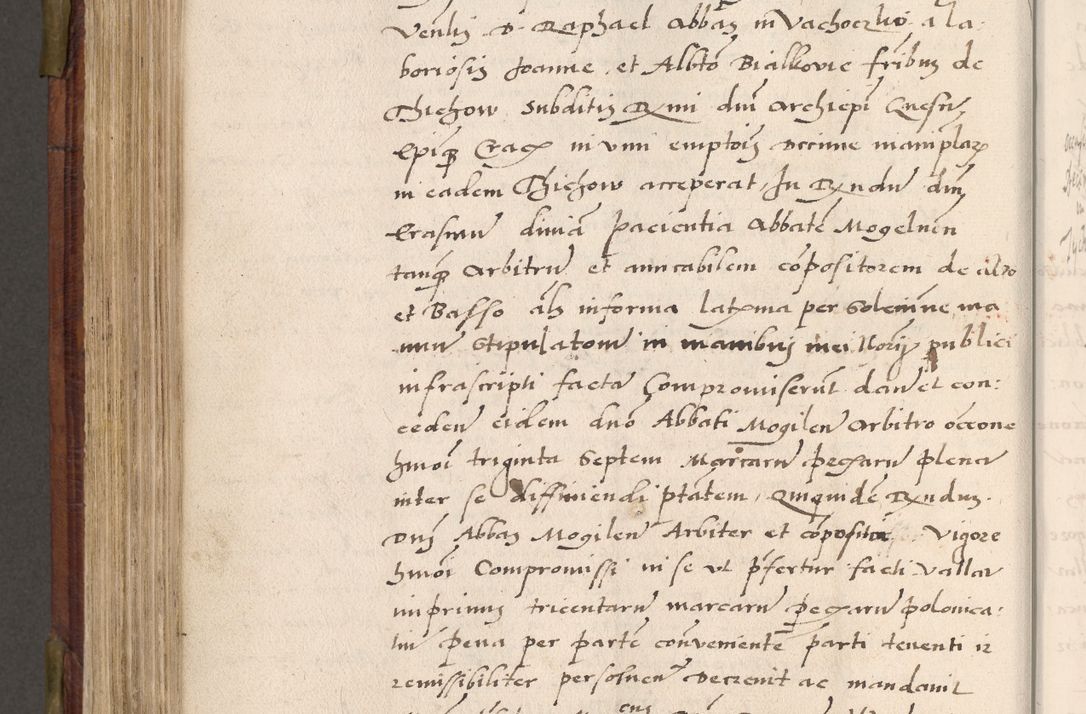 Venlis D Raphael Abbas in Vachoczko a la
boriosis Joanne et Albto Bialkovic fribus de
Chichow Subditis Rmi dni Archiepi Gnesn
Epiq Crac in vim emptois decime maniplaz
in eadem Chichow acceperat, In Rndu dnu
Erasmu divia pacientia Abbate Mogelnen
tanq Arbitru et amicabilem copositorem de alto
et Basso als in forma latzma per Solenne ma
nuu Stipulatione in manibus mei Norij publici
infrascripti facta Compromiserut dan et con
ceden eidem dno Abbati Mogilen Arbitro occone
hmoi triginta Septem Marcaru pecharu plena
inter se diffiniendi ptatem, Quiquide Rndus
Dns Abbas Mogilen Arbiter et copositor Vigore
hmoi Compromissi in se vt pfertur facti Vallar
inprimis tricentaru marcaru pecharu polonica
lni pena per parte conveniente parti tenenti ir
remissibiliter persolven Decrevit ac mandavit